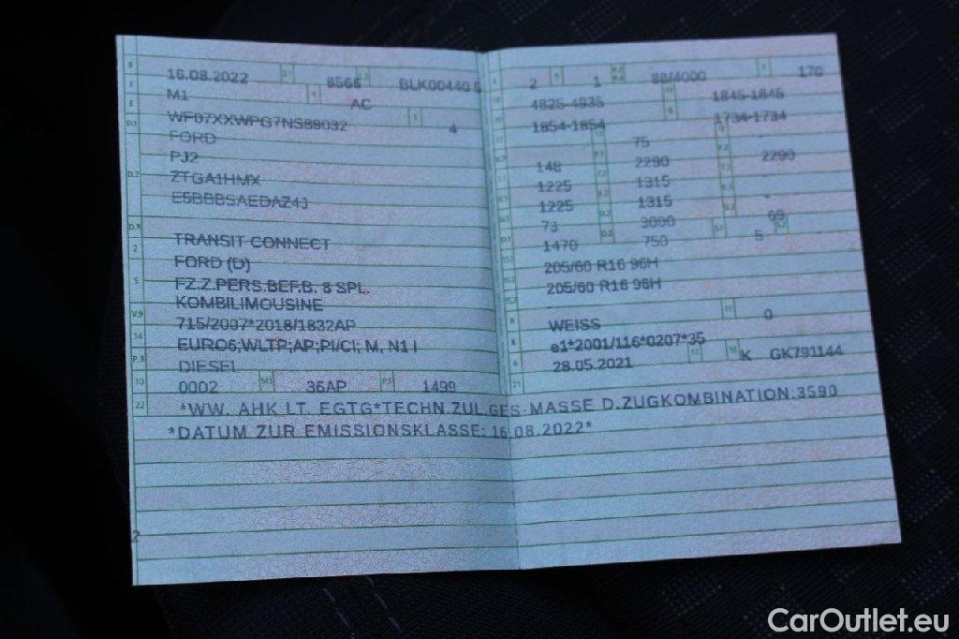 16.08.2022 8566 BLK00440 5
M1 AC
WF07XXWPG7NS89032 4
FORD
PJ2
ZTGA1HMX
E5BBBSAEDAZ4J
TRANSIT CONNECT
FORD (D)
FZ.Z.PERS.BEF.B. 8 SPL.
KOMBILIMOUSINE
715/2007*2018/1832AP
EURO6;WLTP;AP;PI/CI; M, N1 I
DIESEL
0002 36AP 1499
2 1 88/4000 170
4825-4935 1845-1845
1854-1854 1734-1734
75
148 2290 2290
1225 1315 -
1225 1315 -
73 3000 69
1470 750 5
205/60 R16 96H
205/60 R16 96H
WEISS 0
e1*2001/116*0207*35
28.05.2021 K GK791144
*WW. AHK LT. EGTG*TECHN.ZUL.GES-MASSE D.ZUGKOMBINATION:3590
*DATUM ZUR EMISSIONSKLASSE: 16.08.2022*
2
CarOutlet.eu